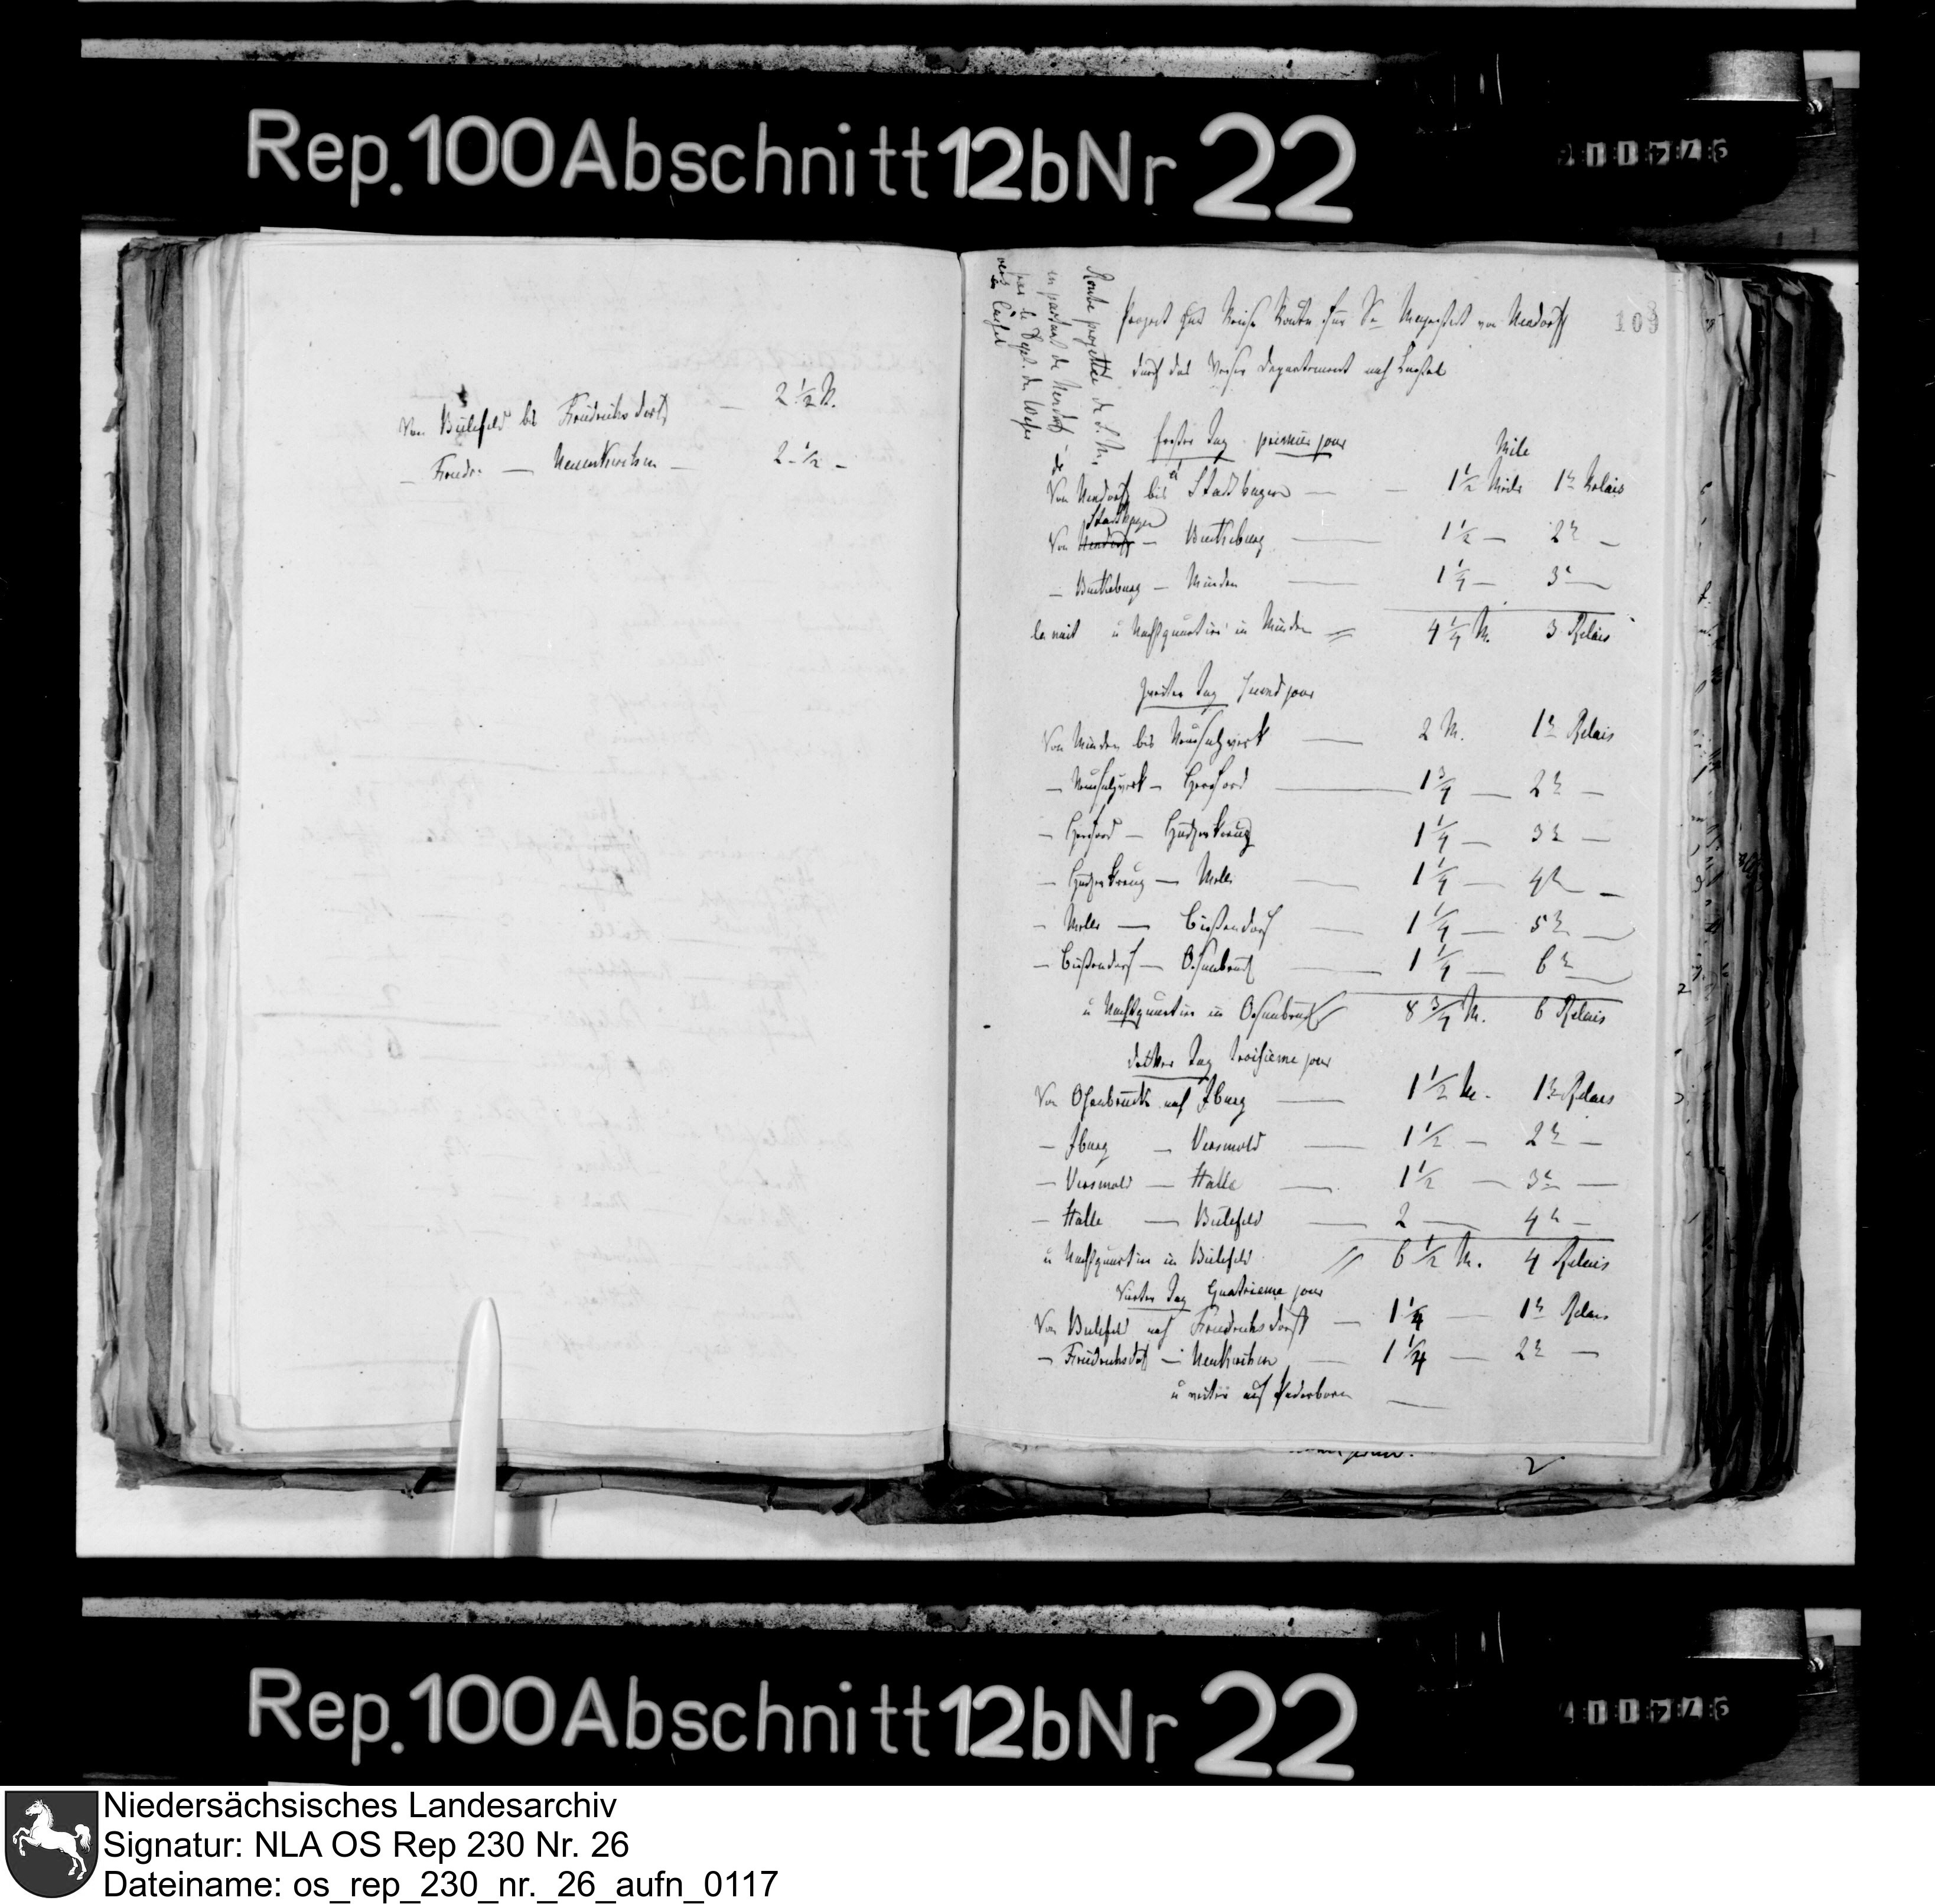 Rep. 100 Abschnitt 12b Nr 22
Von Bielefeld bis Friedrichsdorff — 2 1/2 M.
— Friedr. — Neuenkirchen — 2 1/2 —
109
Route projettée de S. M.
en partant de Nendorf
par le Dept. du Weser
vers Cassel
Project zur Reise Route für Se Majestät von Nendorff
durch das Weser Departement nach Cassel
Erster Tag premier jour Mile
Von Nendorff bis à Stadthagen — 1 1/2 Meile 1r Relais
Stadthagen
Von Nendorff — Bückeburg — 1 1/2 — 2r —
— Bückeburg — Minden — 1 1/4 — 3r —
la nuit u Nachtquartier in Minden 4 1/4 M. 3 Relais
Zweiter Tag Second jour
Von Minden bis Neusalzwerk — 2 M. 1r Relais
— Neusalzwerk — Herford — 1 3/4 — 2r —
— Herford — — 1 1/4 — 3r —
— — Melle — 1 1/4 — 4r —
— Melle — Bissendorf — 1 1/4 — 5r —
— Bissendorf — Osnabrück — 1 1/4 — 6r —
u Nachtquartier in Osnabrück 8 3/4 M. 6 Relais
dritter Tag troisieme jour
Von Osnabrück nach Iburg — 1 1/2 M. 1r Relais
— Iburg — Versmold — 1 1/2 — 2r —
— Versmold — Halle — 1 1/2 — 3r —
— Halle — Bielefeld — 2 — 4r —
u Nachtquartier in Bielefeld 6 1/2 M. 4 Relais
Vierter Tag Quatrieme jour
Von Bielefeld nach Friedrichsdorff — 1 1/4 — 1r Relais
— Friedrichsdorff — Neuenkirchen — 1 1/4 — 2r —
u weiter auf Paderborn —
Rep. 100 Abschnitt 12b Nr 22
Niedersächsisches Landesarchiv
Signatur: NLA OS Rep 230 Nr. 26
Dateiname: os_rep_230_nr._26_aufn_0117